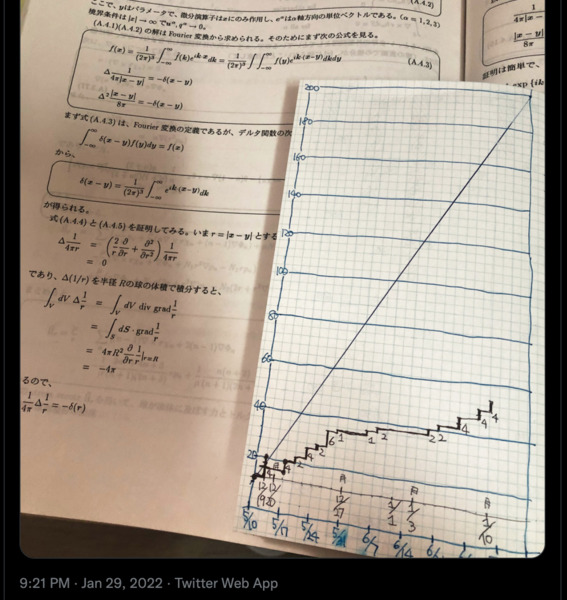 (A.4.2)
ここで、yはパラメータで、微分演算子はxにのみ作用し、e^αはα軸方向の単位ベクトルである。(α = 1, 2, 3)
(A.4.1)(A.4.2) の解は Fourier 変換から求められる。そのためにまず次の公式を見る。
f(x) = 1/(2π)³ ∫_{-∞}^{∞} f(k)e^{ik·x}dk = 1/(2π)³ ∫∫_{-∞}^{∞} f(y)e^{ik·(x-y)}dkdy (A.4.3)
Δ 1/(4π|x-y|) = -δ(x-y)
Δ² |x-y|/8π = -δ(x-y)
まず式 (A.4.3) は、Fourier 変換の定義であるが、デルタ関数の
∫_{-∞}^{∞} δ(x-y)f(y)dy = f(x)
から、
δ(x-y) = 1/(2π)³ ∫_{-∞}^{∞} e^{ik·(x-y)}dk
が得られる。
式 (A.4.4) と (A.4.5) を証明してみる。いま r = |x-y| とする
Δ 1/4πr = (2/r ∂/∂r + ∂²/∂r²) 1/4πr
= 0
であり、Δ(1/r) を半径 R の球の体積で積分すると、
∫_V dV Δ 1/r = ∫_V dV div grad 1/r
= ∫_S dS · grad 1/r
= 4πR² ∂/∂r 1/r |_{r=R}
= -4π
るので、
1/4π Δ 1/r = -δ(r)
証明は簡単で、
200
180
160
140
120
100
80
60
40
20
4 4 2 4 2 6 1 1 2 2 2 4 4 4
月 月 月 月
12/19 12/20 12/27 1/1 1/3 1/10
5/10 5/17 5/24 6/7 6/14
9:21 PM · Jan 29, 2022 · Twitter Web App